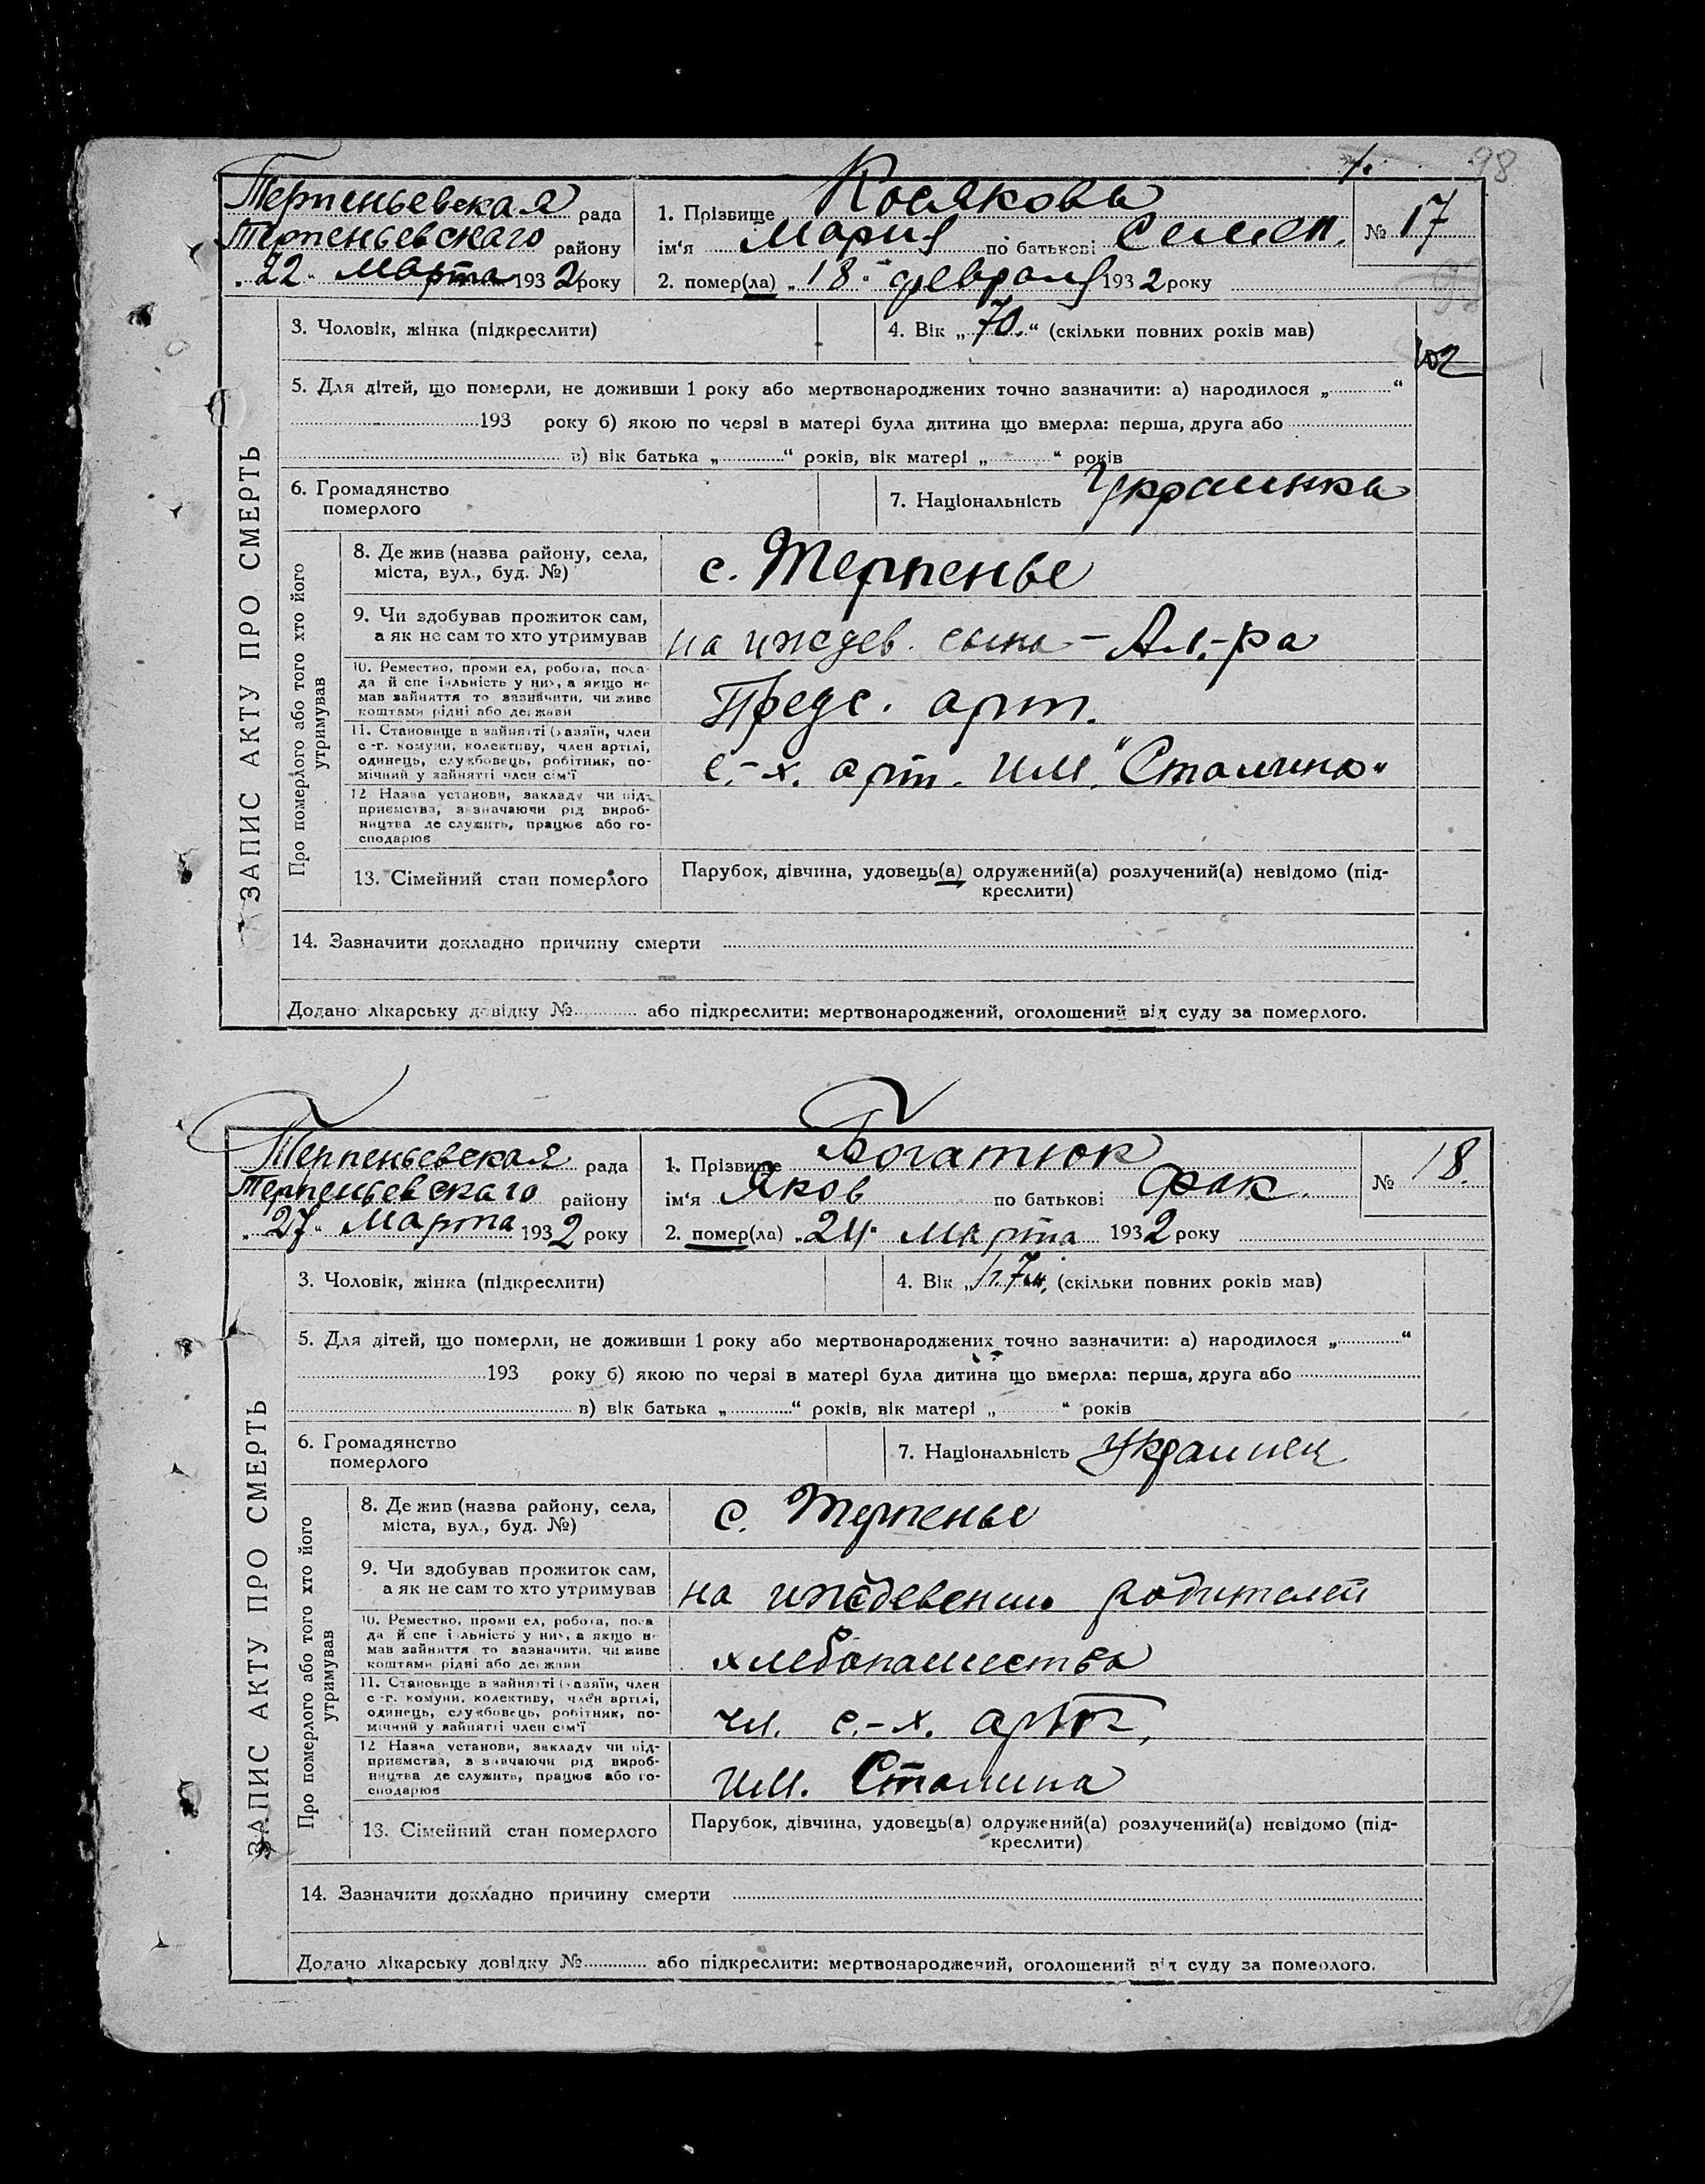 98
Терпеньевская рада
Терпеньевскаго району
„22“ Марта 1932 року
1. Прізвище Косякова
ім‘я Мария по батькові Семен.
2. помер(ла) „18“ февраля 1932 року
№ 17
3. Чоловік, жінка (підкреслити)
4. Вік „70.“ (скільки повних років мав)
102
5. Для дітей, що померли, не доживши 1 року або мертвонароджених точно зазначити: а) народилося „ “
193 року б) якою по черзі в матері була дитина що вмерла: перша, друга або
в) вік батька „ “ років, вік матері „ “ років
6. Громадянство
померлого
7. Національність Украинка
ЗАПИС АКТУ ПРО СМЕРТЬ
Про померлого або того хто його
утримував
8. Де жив (назва району, села,
міста, вул., буд. №)
с. Терпенье
9. Чи здобував прожиток сам,
а як не сам то хто утримував
на иждев. сына – Ал-ра
10. Ремество, промисел, робота, поса-
да й спеціяльність у них, а якщо не
мав зайняття то зазначити, чи живе
коштами рідні або держави
Предс. арт.
11. Становище в зайнятті (хазяїн, член
с.-г. комуни, колективу, член артілі,
одинець, службовець, робітник, по-
мічний у зайнятті член сім‘ї
с.-х. арт. им. "Сталина"
12 Назва установи, закладу чи під-
приємства, зазначаючи рід вироб-
ництва де служить, працює або го-
сподарює
13. Сімейний стан померлого
Парубок, дівчина, удовець(а) одружений(а) розлучений(а) невідомо (під-
креслити)
14. Зазначити докладно причину смерти
Додано лікарську довідку № або підкреслити: мертвонароджений, оголошений від суду за померлого.
Терпеньевская рада
Терпеньевскаго району
„27“ Марта 1932 року
1. Прізвище Богатюк
ім‘я Яков по батькові Фак.
2. помер(ла) „24“ марта 1932 року
№ 18.
3. Чоловік, жінка (підкреслити)
4. Вік „1г. 7м. (скільки повних років мав)
5. Для дітей, що померли, не доживши 1 року або мертвонароджених точно зазначити: а) народилося „ “
193 року б) якою по черзі в матері була дитина що вмерла: перша, друга або
в) вік батька „ “ років, вік матері „ “ років
6. Громадянство
померлого
7. Національність Украинец
ЗАПИС АКТУ ПРО СМЕРТЬ
Про померлого або того хто його
утримував
8. Де жив (назва району, села,
міста, вул., буд. №)
с. Терпенье
9. Чи здобував прожиток сам,
а як не сам то хто утримував
на иждевении родителей
10. Ремество, промисел, робота, поса-
да й спеціяльність у них, а якщо не
мав зайняття то зазначити, чи живе
коштами рідні або держави
хлебопашества
11. Становище в зайнятті (хазяїн, член
с.-г. комуни, колективу, член артілі,
одинець, службовець, робітник, по-
мічний у зайнятті член сім‘ї
чл. с.-х. арт.
12 Назва установи, закладу чи під-
приємства, зазначаючи рід вироб-
ництва де служить, працює або го-
сподарює
им. Сталина
13. Сімейний стан померлого
Парубок, дівчина, удовець(а) одружений(а) розлучений(а) невідомо (під-
креслити)
14. Зазначити докладно причину смерти
Додано лікарську довідку № або підкреслити: мертвонароджений, оголошений від суду за померлого.